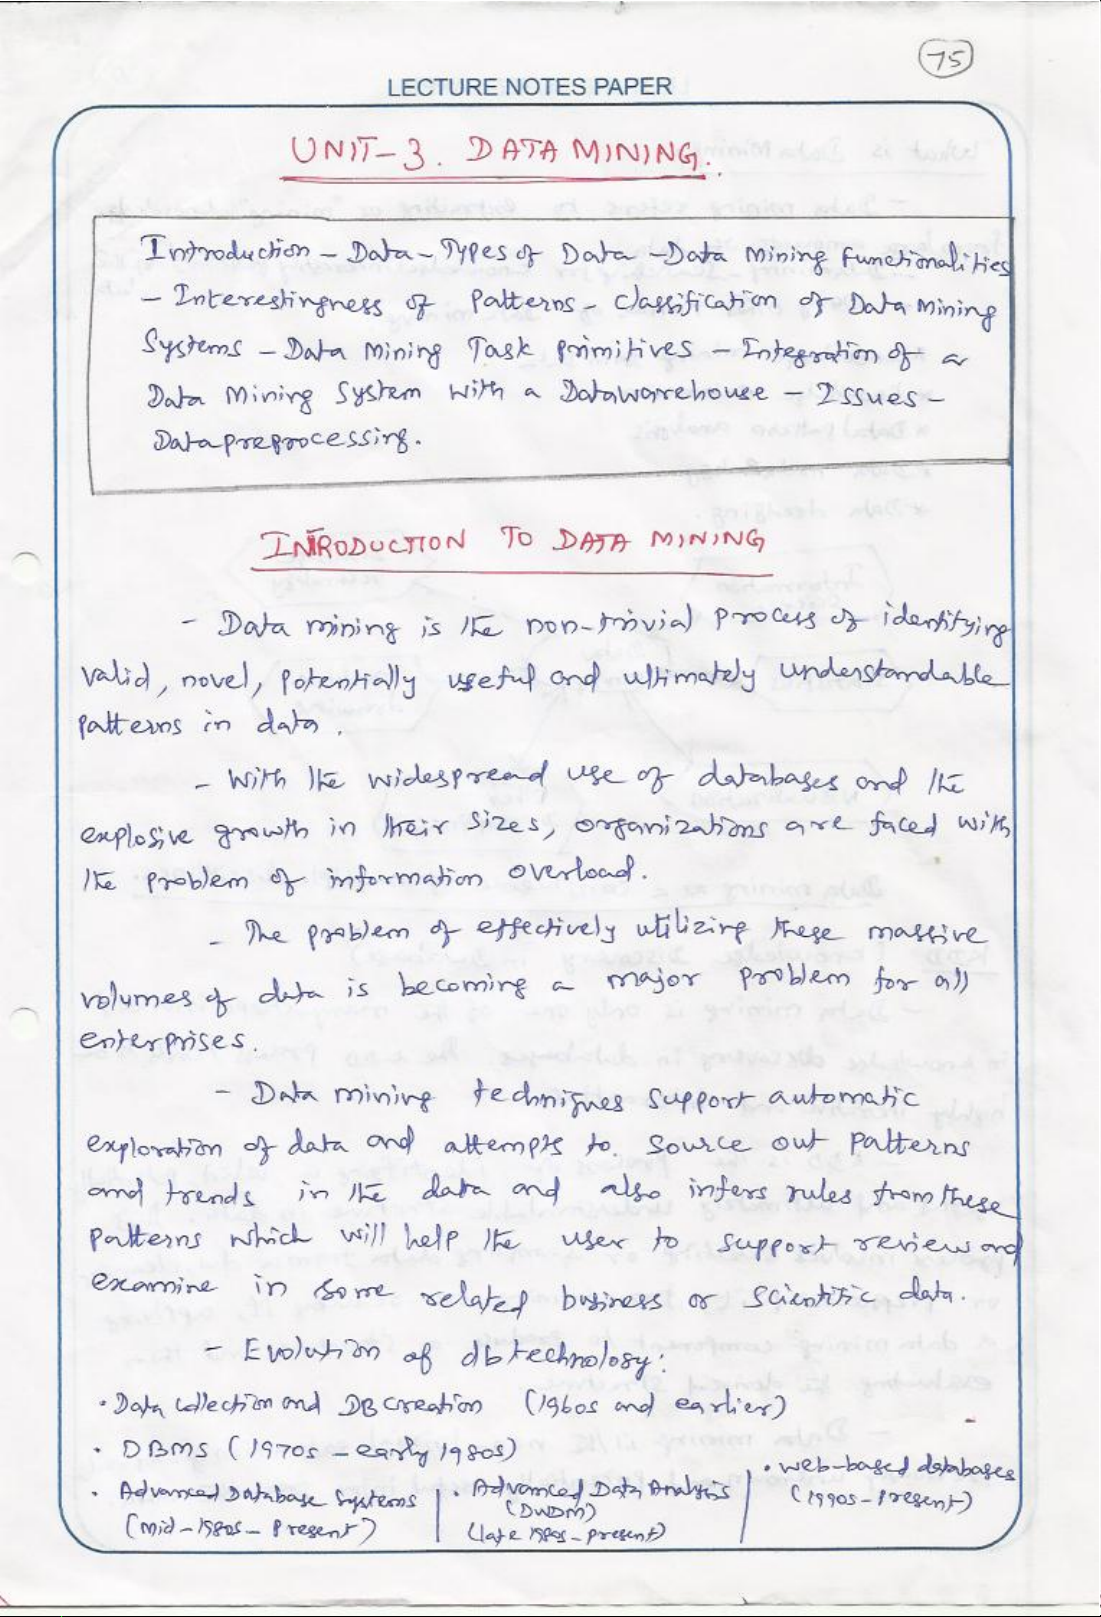 75
LECTURE NOTES PAPER
UNIT-3. DATA MINING.
Introduction - Data - Types of Data - Data Mining Functionalities
- Interestingness of Patterns - Classification of Data Mining
Systems - Data Mining Task primitives - Integration of a
Data Mining System with a Datawarehouse - Issues -
Datapreprocessing.
INTRODUCTION TO DATA MINING
- Data mining is the non-trivial process of identifying
valid, novel, potentially useful and ultimately understandable
patterns in data.
- With the widespread use of databases and the
explosive growth in their sizes, organizations are faced with
the problem of information overload.
- The problem of effectively utilizing these massive
volumes of data is becoming a major problem for all
enterprises.
- Data mining techniques support automatic
exploration of data and attempts to source out patterns
and trends in the data and also infers rules from these
patterns which will help the user to support review and
examine in some related business or scientific data.
- Evolution of db technology:
• Data collection and DB creation (1960s and earlier)
• DBMS (1970s - early 1980s)
• Advanced Database Systems
(mid-1980s - Present)
• Advanced Data Analysis
(DWDM)
(late 1980s - present)
• web-based databases
(1990s - Present)